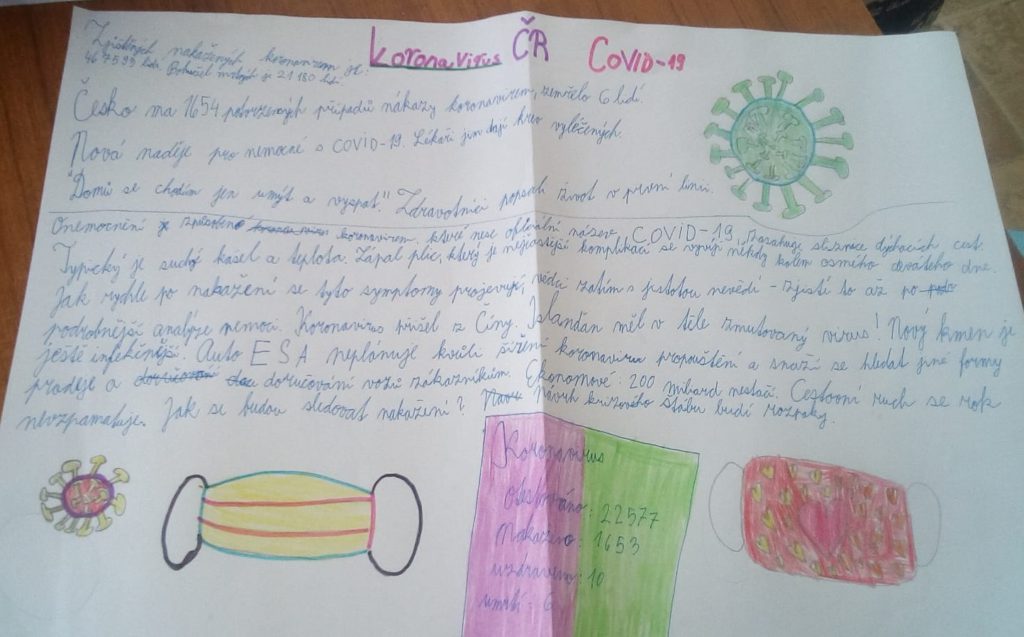 Koronavirus ČR COVID-19
Zjištěných nakažených koronavirem je:
467593 lidí. Bohužel mrtvých je 21180 lidí.
Česko ma 1654 potvrzených případů nákazy koronavirem, zemřelo 6 lidí.
Nová naděje pro nemocné s COVID-19. Lékaři jim dají krev vyléčených.
"Domů se chodím jen umýt a vyspat." Zdravotníci popsali život v první linii.
Onemocnění je způsobené koronavirem, které nese oficiální název COVID-19, zasahuje sliznice dýchacích cest.
Typický je suchý kašel a teplota. Zápal plic, který je nejčastější komplikací se vyvíjí někdy kolem osmého devátého dne.
Jak rychle po nakažení se tyto symptomy projevují, vědci zatím s jistotou nevědí - zjistí to až po
podrobnější analýze nemoci. Koronavirus přišel z Číny. Islanďan měl v těle zmutovaný virus! Nový kmen je
ještě infekčnější. Auto ESA neplánuje kvůli šíření koronaviru propouštění a snaží se hledat jiné formy
prodeje a doručování vozů zákazníkům. Ekonomové: 200 miliard nestačí. Cestovní ruch se rok
nevzpamatuje. Jak se budou sledovat nakažení? Návrh krizového štábu budí rozpaky.
Koronavirus
otestováno: 22577
Nakaženo: 1653
uzdraveno: 10
umrtí: 6